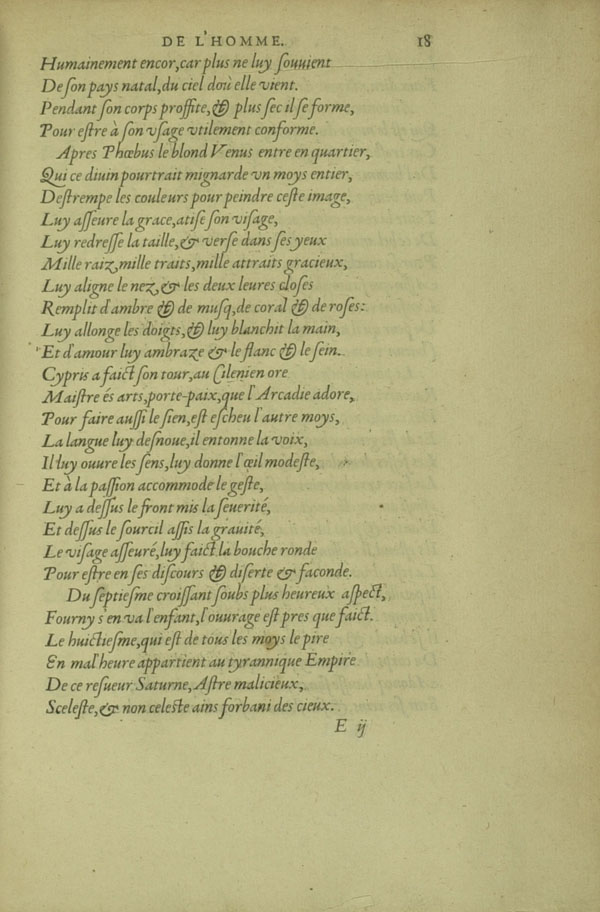 DE L'HOMME. 18
Humainement encor,car plus ne luy souuient
De son pays natal,du ciel doù elle vient.
Pendant son corps proffite,& plus sec il se forme,
Pour estre à son vsage vtilement conforme.
Apres Phœbus le blond Venus entre en quartier,
Qui ce diuin pourtrait mignarde vn moys entier,
Destrempe les couleurs pour peindre ceste image,
Luy asseure la grace,atise son visage,
Luy redresse la taille,& verse dans ses yeux
Mille raiz,mille traits,mille attraits gracieux,
Luy aligne le nez,& les deux leures closes
Remplit d'ambre & de musq,de coral & de roses:
Luy allonge les doigts,& luy blanchit la main,
Et d'amour luy ambraze & le flanc & le sein.
Cypris a faict son tour,au Cilenien ore
Maistre és arts,porte-paix,que l'Arcadie adore,
Pour faire aussi le sien,est escheu l'autre moys,
La langue luy desnoue,il entonne la voix,
Il luy ouure les sens,luy donne l'œil modeste,
Et à la passion accommode le geste,
Luy a dessus le front mis la seuerité,
Et dessus le sourcil assis la grauité,
Le visage asseuré,luy faict la bouche ronde
Pour estre en ses discours & diserte & faconde.
Du septiesme croissant soubs plus heureux aspect,
Fourny s'en va l'enfant,l'ouurage est pres que faict.
Le huictiesme,qui est de tous les moys le pire
En mal'heure appartient au tyrannique Empire
De ce resueur Saturne,Astre malicieux,
Sceleste,& non celeste ains forbani des cieux.
E ij